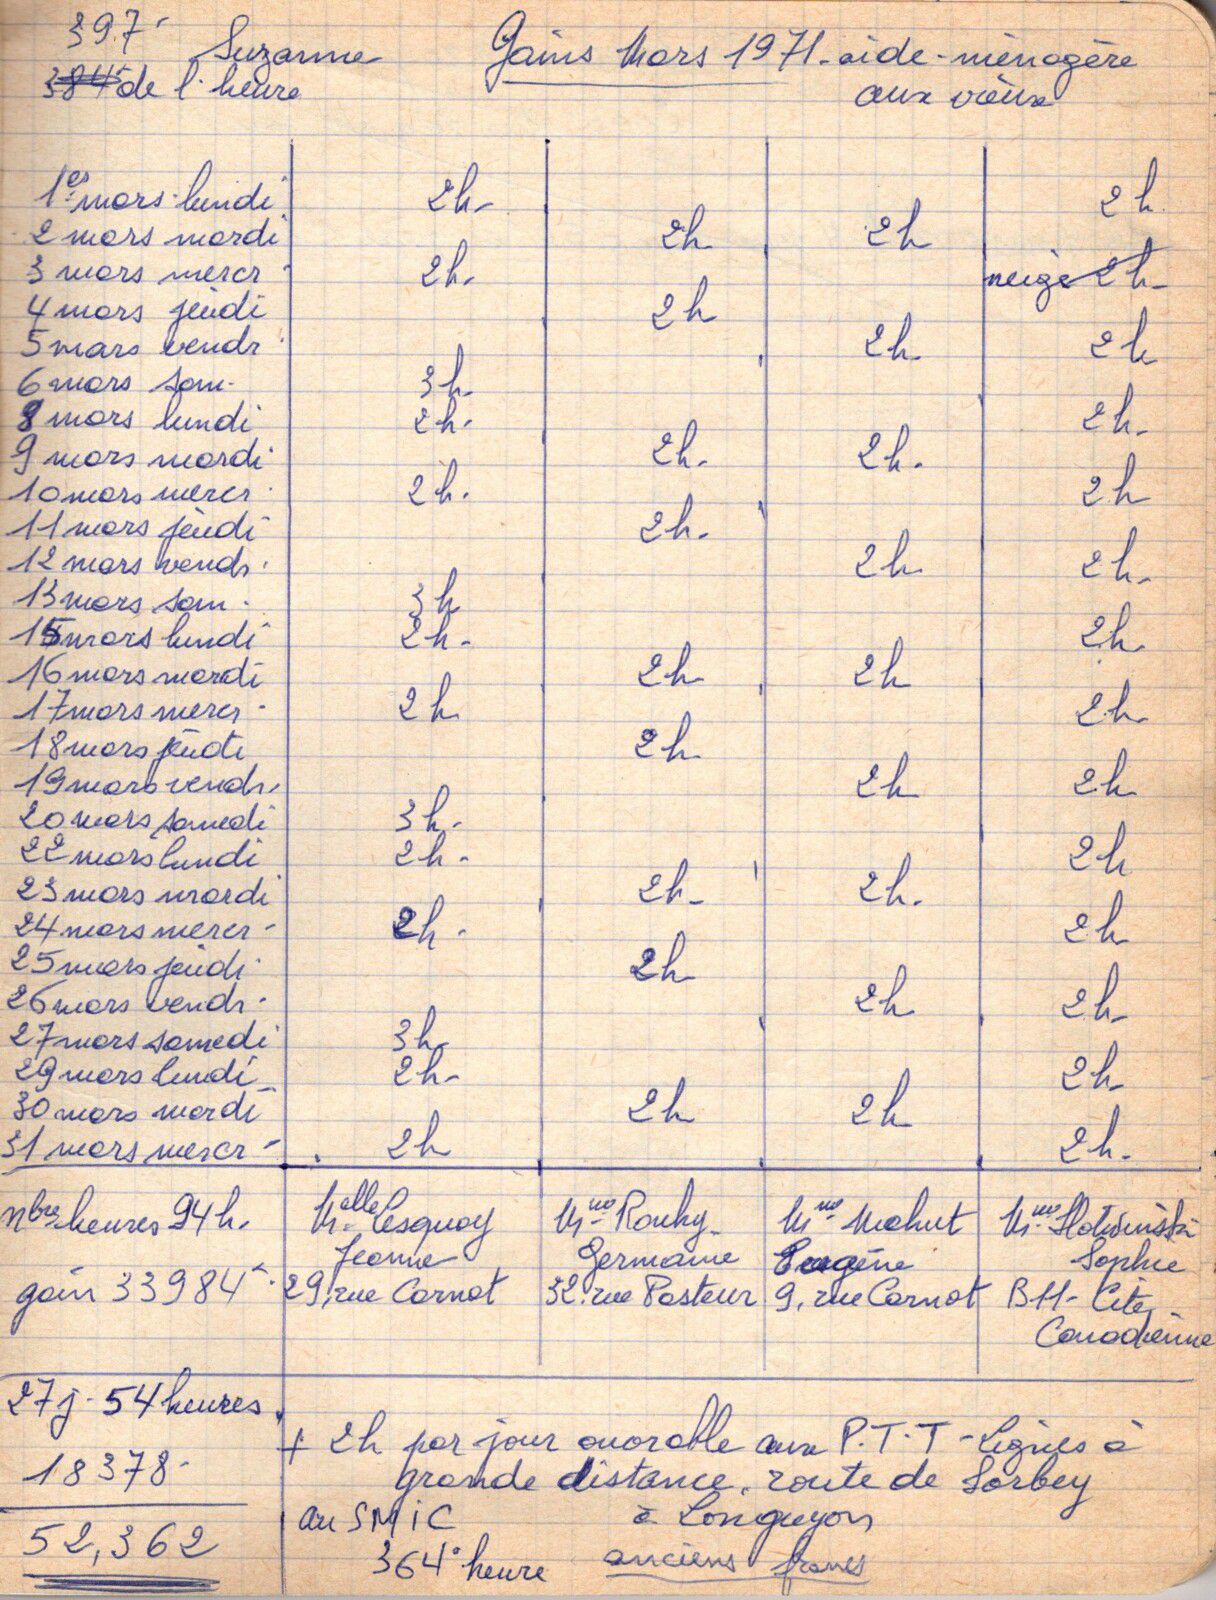 397 Suzanne Gains Mars 1971. aide-ménagère
384 de l'heure aux vieux
1er mars lundi 2h. 2h
2 mars mardi 2h 2h
3 mars mercr. 2h. neige 2h.
4 mars jeudi 2h
5 mars vendr 2h. 2h
6 mars sam. 3h.
8 mars lundi 2h. 2h.
9 mars mardi 2h. 2h.
10 mars mercr. 2h. 2h
11 mars jeudi 2h.
12 mars vendr. 2h. 2h.
13 mars sam. 3h
15 mars lundi 2h. 2h.
16 mars mardi 2h 2h
17 mars mercr. 2h 2h.
18 mars jeudi 2h.
19 mars vendr. 2h 2h
20 mars samedi 3h.
22 mars lundi 2h. 2h
23 mars mardi 2h. 2h.
24 mars mercr. 2h. 2h
25 mars jeudi 2h
26 mars vendr. 2h 2h.
27 mars samedi 3h.
29 mars lundi 2h. 2h.
30 mars mardi 2h 2h
31 mars mercr. 2h 2h.
nbres heures 94h. Melle Lesquoy Mme Rouhy Mme Mahut Mme
Jeanne Germaine Eugénie Sophie
gain 33984. 29, rue Carnot 32. rue Pasteur 9, rue Carnot B11- Cité
Canadienne
27j. 54 heures.
+ 2h par jour ouvrable aux P.T.T - Lignes à
18378. grande distance, route de Sorbey
au SMIC à Longuyon
52,362 364 heure anciens francs